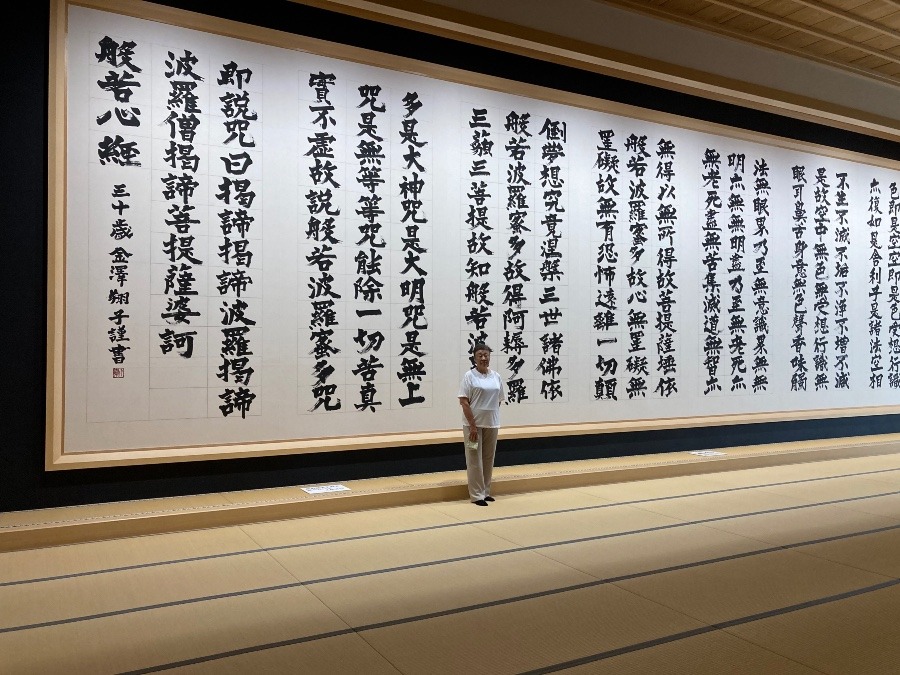 色即是空空即是色受想行識
亦復如是舎利子是諸法空相
不生不滅不垢不淨不增不減
是故空中無色無受想行識無
眼耳鼻舌身意無色聲香味觸
法無眼界乃至無意識界無無
明亦無無明盡乃至無老死亦
無老死盡無苦集滅道無智亦
無得以無所得故菩提薩埵依
般若波羅蜜多故心無罣礙無
罣礙故無有恐怖遠離一切顛
倒夢想究竟涅槃三世諸佛依
般若波羅蜜多故得阿耨多羅
三藐三菩提故知般若波
多是大神咒是大明咒是無上
咒是無等等咒能除一切苦真
實不虛故説般若波羅蜜多咒
即説咒曰揭諦揭諦波羅揭諦
波羅僧揭諦菩提薩婆訶
般若心經 三十歳 金澤翔子謹書